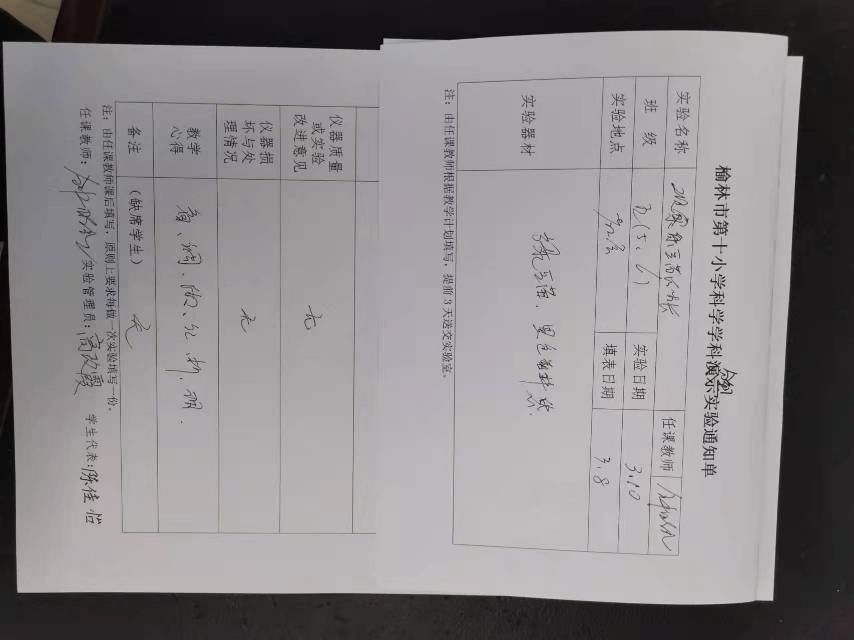 榆林市第十小学科学学科演示实验通知单
分组
实验名称 观察 任课教师
班 级 五(5、6) 实验日期 3.10
实验地点 填表日期 3.8
实验器材
黑色塑料袋
注：由任课教师根据教学计划填写，提前3天送交实验室。
仪器质量或实验改进意见 无
仪器损坏与处理情况 无
教学心得 看、调、做、分析、
备注 (缺席学生) 无
注：由任课教师课后填写，原则上要求每做一次实验填写一份。
任课教师： 实验管理员：高改霞 学生代表：陈佳怡